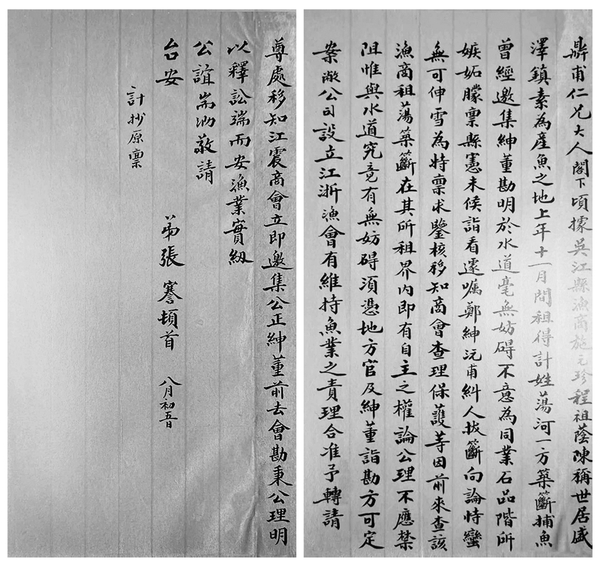 鼎甫仁兄大人閣下頃據吳江縣漁商施元珍程祖蔭陳稱世居盛
澤鎮素為產魚之地上年十一月間租得計姓蕩河一方築籪捕魚
曾經邀集紳董勘明於水道毫無妨碍不意為同業石品階所
嫉妬朦禀縣憲未候詣看遽嘱鄭紳沅甫糾人拔籪向論恃蠻
無可伸雪為特禀求鑒核移知商會查理保護等因前來查該
漁商租蕩築籪在其所租界內即有自主之權論公理不應禁
阻惟與水道究竟有無妨碍須憑地方官及紳董詣勘方可定
案敝公司設立江浙漁會有維持魚業之責理合准予轉請
尊處移知江震商會立即邀集公正紳董前去會勘秉公理明
以釋訟端而安漁業實紉
公誼耑泐敬請
台安
弟張謇頓首 八月初五日
計抄原禀